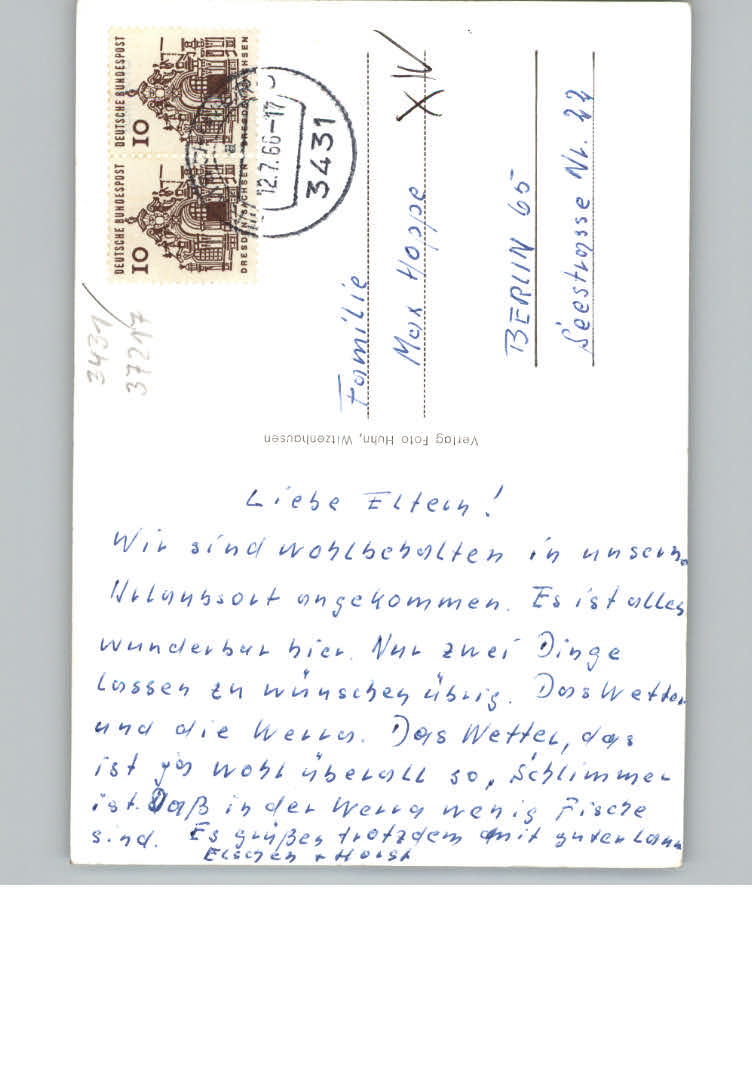 Liebe Eltern!
Wir sind wohlbehalten in unserm
Urlaubsort angekommen. Es ist alles
wunderbar hier. Nur zwei Dinge
lassen zu wünschen übrig. Das Wetter
und die Werra. Das Wetter, das
ist ja wohl überall so, Schlimmer
ist. Daß in der Werra wenig Fische
sind. Es grüßen trotzdem mit guter Laune
Elschen + Horst
Verlag Foto Huhn, Witzenhausen
Familie
Max Hoppe
BERLIN 65
Seestrasse Nr. 22
XIV
DEUTSCHE BUNDESPOST
10
DRESDEN/SACHSEN
DEUTSCHE BUNDESPOST
10
DRESDEN/SACHSEN
a
12.7.66-17
3431
3431
37217